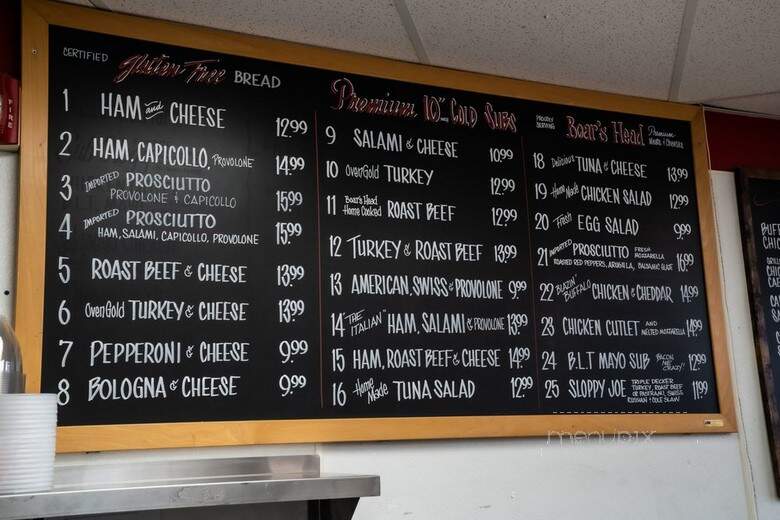 CERTIFIED Gluten Free BREAD
1 HAM and CHEESE 12.99
2 HAM, CAPICOLLO, PROVOLONE 14.99
3 IMPORTED PROSCIUTTO 15.99
PROVOLONE & CAPICOLLO
4 IMPORTED PROSCIUTTO 15.99
HAM, SALAMI, CAPICOLLO, PROVOLONE
5 ROAST BEEF & CHEESE 13.99
6 OvenGold TURKEY & CHEESE 13.99
7 PEPPERONI & CHEESE 9.99
8 BOLOGNA & CHEESE 9.99
Premium 10" COLD SUBS
9 SALAMI & CHEESE 10.99
10 OvenGold TURKEY 12.99
11 Boar's Head Home Cooked ROAST BEEF 12.99
12 TURKEY & ROAST BEEF 13.99
13 AMERICAN, SWISS & PROVOLONE 9.99
14 "THE ITALIAN" HAM, SALAMI & PROVOLONE 13.99
15 HAM, ROAST BEEF & CHEESE 14.99
16 Home Made TUNA SALAD 12.99
PROUDLY SERVING Boar's Head Premium Meats & Cheeses
18 Delicious TUNA & CHEESE 13.99
19 Home Made CHICKEN SALAD 12.99
20 Fresh EGG SALAD 9.99
21 IMPORTED PROSCIUTTO FRESH MOZZARELLA 16.99
ROASTED RED PEPPERS, ARUGULA, BALSAMIC GLAZE
22 BLAZIN' BUFFALO CHICKEN & CHEDDAR 14.99
23 CHICKEN CUTLET AND MELTED MOZZARELLA 14.99
24 B.L.T MAYO SUB "BACON ME CRAZY!" 12.99
25 SLOPPY JOE TRIPLE DECKER 11.99
TURKEY, ROAST BEEF
OR PASTRAMI, SWISS
RUSSIAN & COLE SLAW
menupix
FIRE